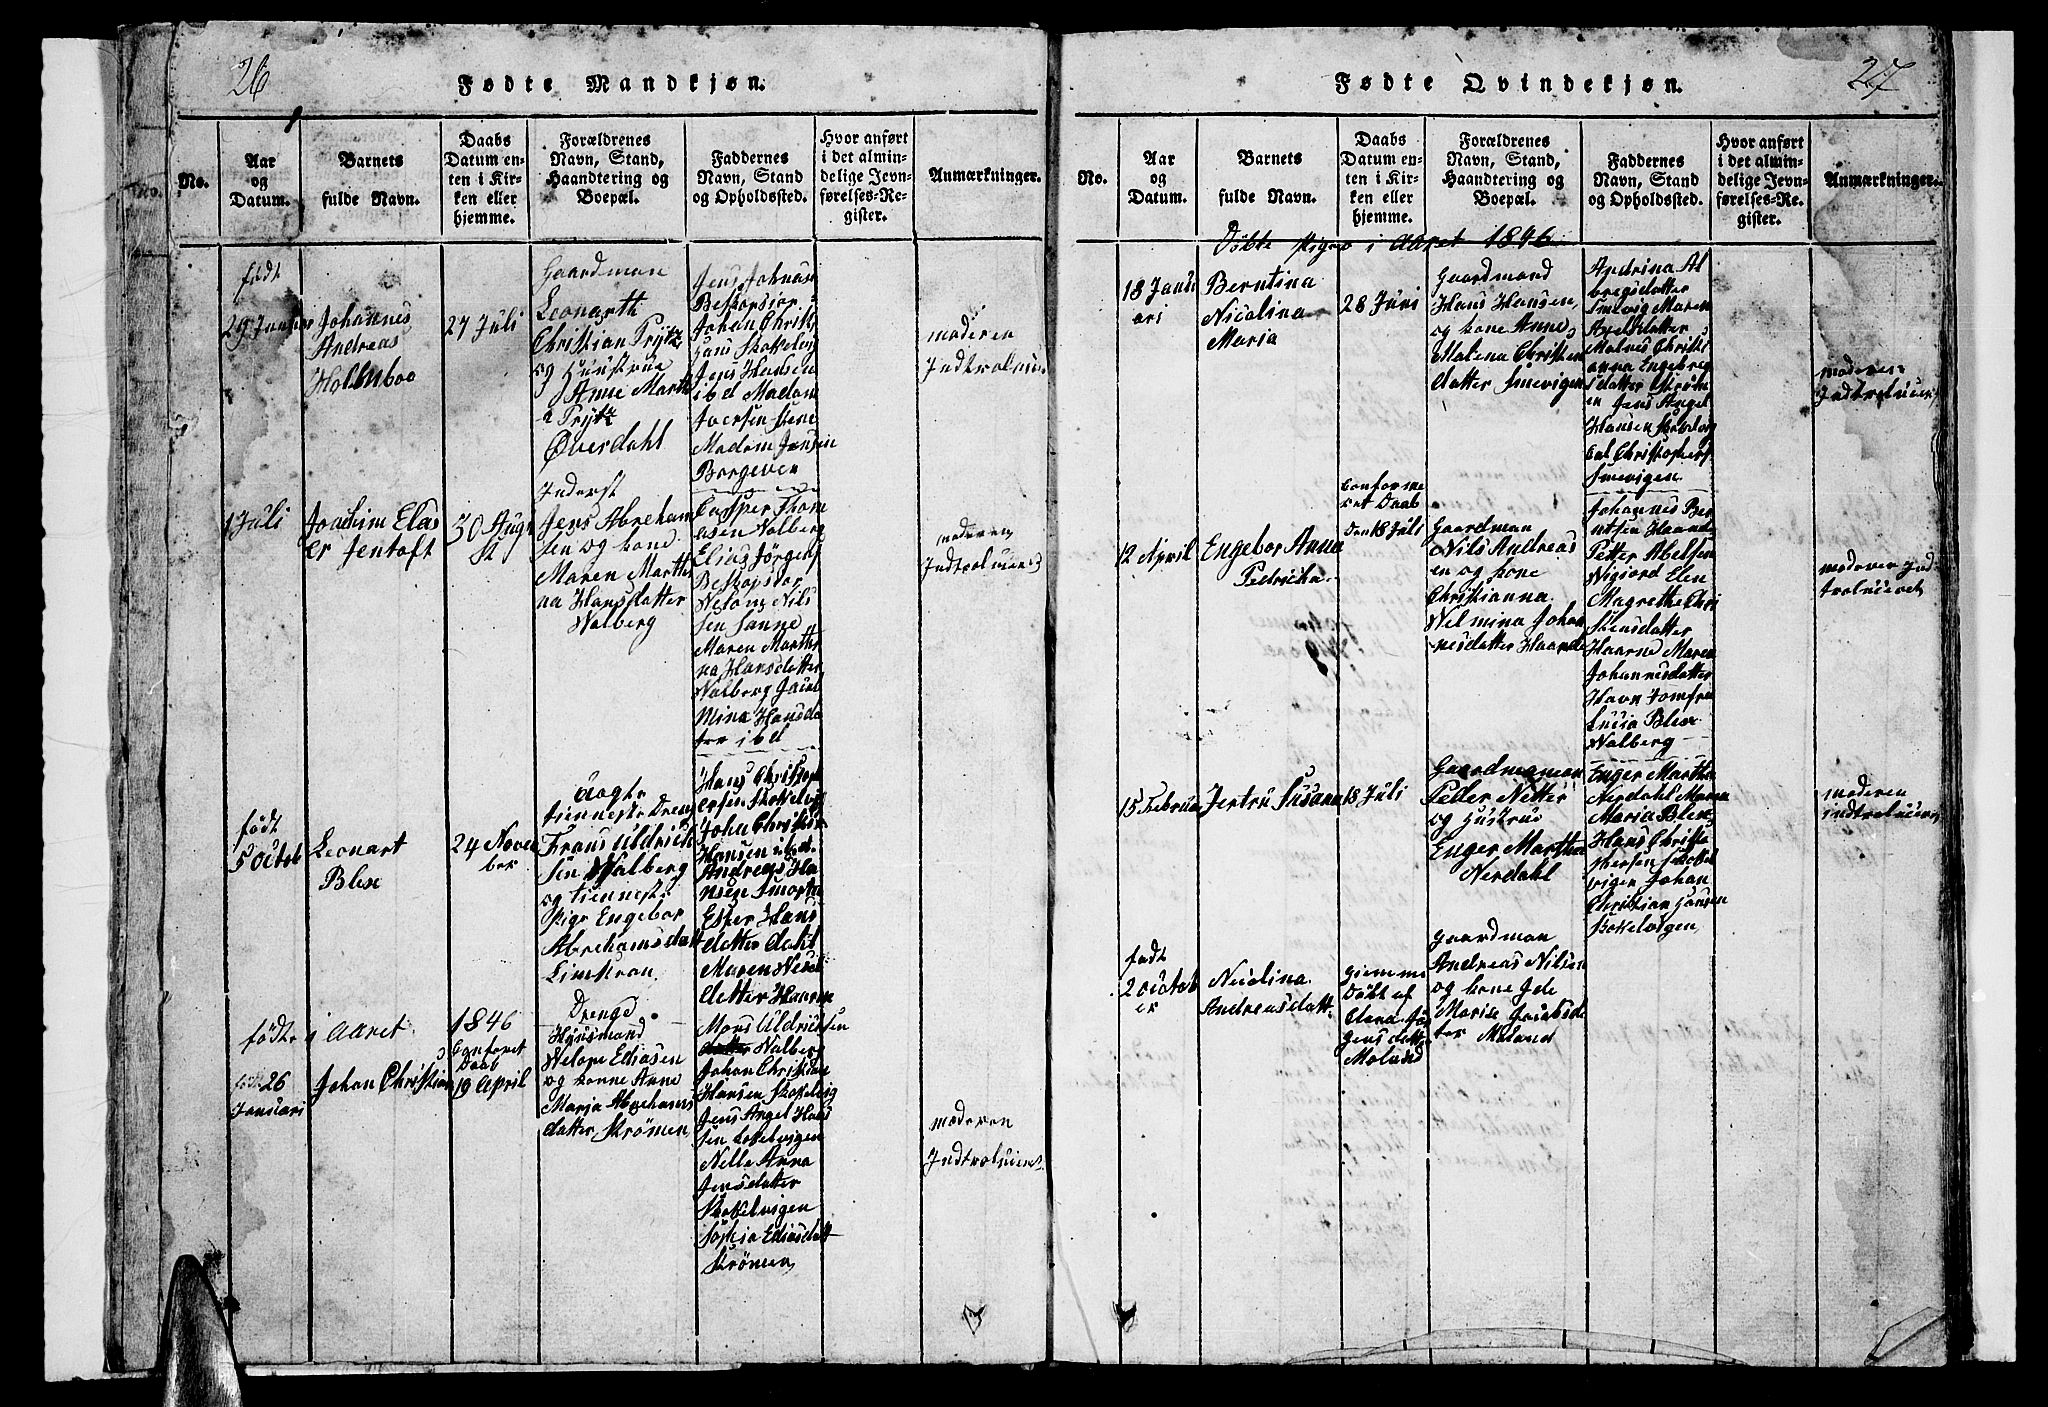 26
Fødte Mandkjøn.
No.
Aar
og
Datum.
Barnets
fulde Navn.
Daabs
Datum en-
ten i Kir-
ken eller
hjemme.
Forældrenes
Navn, Stand,
Haandtering og
Boepæl.
Faddernes
Navn, Stand
og Opholdssted.
Hvor anført
i det almin-
delige Jevn-
førelses-Re-
gister.
Anmærkninger.
født
29 Januar
Johannes
Andreas
Holmboo
27 Juli
Gaardman
Leonarth
Christian Prytz
og Huustrue
Anne Marth
a Prytz
Øverdahl
Jens Johnsen
Johan Christi
Hans Skokelvig
Jens Hansen
ibd Madam
Madam Jensen
Borgeven
moderen
1 Juli
Joachim Elas
er Jentoft
30 Augu
st
Inderst
Jens Abreham
sen og kone
Maren Marth
na Hansdatter
Valberg
Casper Thom
asen Valberg
Elias Jørgens
Nils
sen Sanne
Maren Marth
na Hansdatter
Valberg Jacob
Mina Hansda
tter ibd
moderen
født
5 Octob
Leonart
Blix
24 Novem
ber
tienneste Dreng
Frans Uldrich
sen Valberg
og tienneste
Pige Engebor
Abrehamsdatt
Limstran
Hans Christop
ersen Skokelvi
Johan Christia
Hansen ibd
Andreas Ha
nsen Smorten
Ester Hans
datter Dahl
Maren Nesel
datter Haaren
født i Aaret 1846 Drenge
født 26
Januari
Johan Christian
Conferet
Daab
19 April
Huusmand
Nelope Eliasen
og konne Anne
Maria Abrehams
datter Strømen
Mons Uldricksen
Valberg
Johan Christian
Hansen Skokelvig
Jens Angel Han
sen Skokelvigen
Nelle Anna
Jensdatter
Skokelvigen
Sophia Eliasdatt
Strømen
moderen
27
Fødte Qvindekjøn.
No.
Aar
og
Datum.
Barnets
fulde Navn.
Daabs
Datum en-
ten i Kir-
ken eller
hjemme.
Forældrenes
Navn, Stand,
Haandtering og
Boepæl.
Faddernes
Navn, Stand
og Opholdssted.
Hvor anført
i det almin-
delige Jevn-
førelses-Re-
gister.
Anmærkninger.
Døbte piger i Aaret 1846
18 Janu
ari
Berntina
Nicolina
Maria
28 Juni
Gaardmand
Hans Hansen
og kone Anne
Malena Christen
datter Smevigen
Andrina Al
bregsdatter
Smevig Maren
Axelsdatter
Malnes Christi
anna Engebreg
sdatter Strøm
en Jens Angel
Hansen Skokelvig
Carl Christophers
Smevigen
moderen
12 April
Engebor Anna
Pedricha
Conforme
ret Daab
Den 18 Juli
Gaardman
Nils Andreas
en og kone
Christianna
Velmina Johan
nesdatter Haande
Johannes Ber
ntsen Haand
Petter Abelsen
Vigiord Elen
Magrethe Chri
stensdatter
Haarne Maren
Johannesdatter
Havn Jomfru
Lucia Blix
Valberg
moderen Ind
15 Februar
Jertru Susana
18 Juli
Gaardmanman
Peder Netter
og Hustrue
Enger Martha
Nerdahl
Enger Martha
Nerdahl Maren
Maria Blix
Hans Christo
phersen Skokel
vigen Johan
Christian Hansen
Skokelvigen
moderen
født
2 Octob
er
Nicolina
Andreasdatt
Giemme
Døbt af
Mølund
Gaardman
Andreas Nilsen
og kone Gde
Marie Jacobsda
tter Mølund